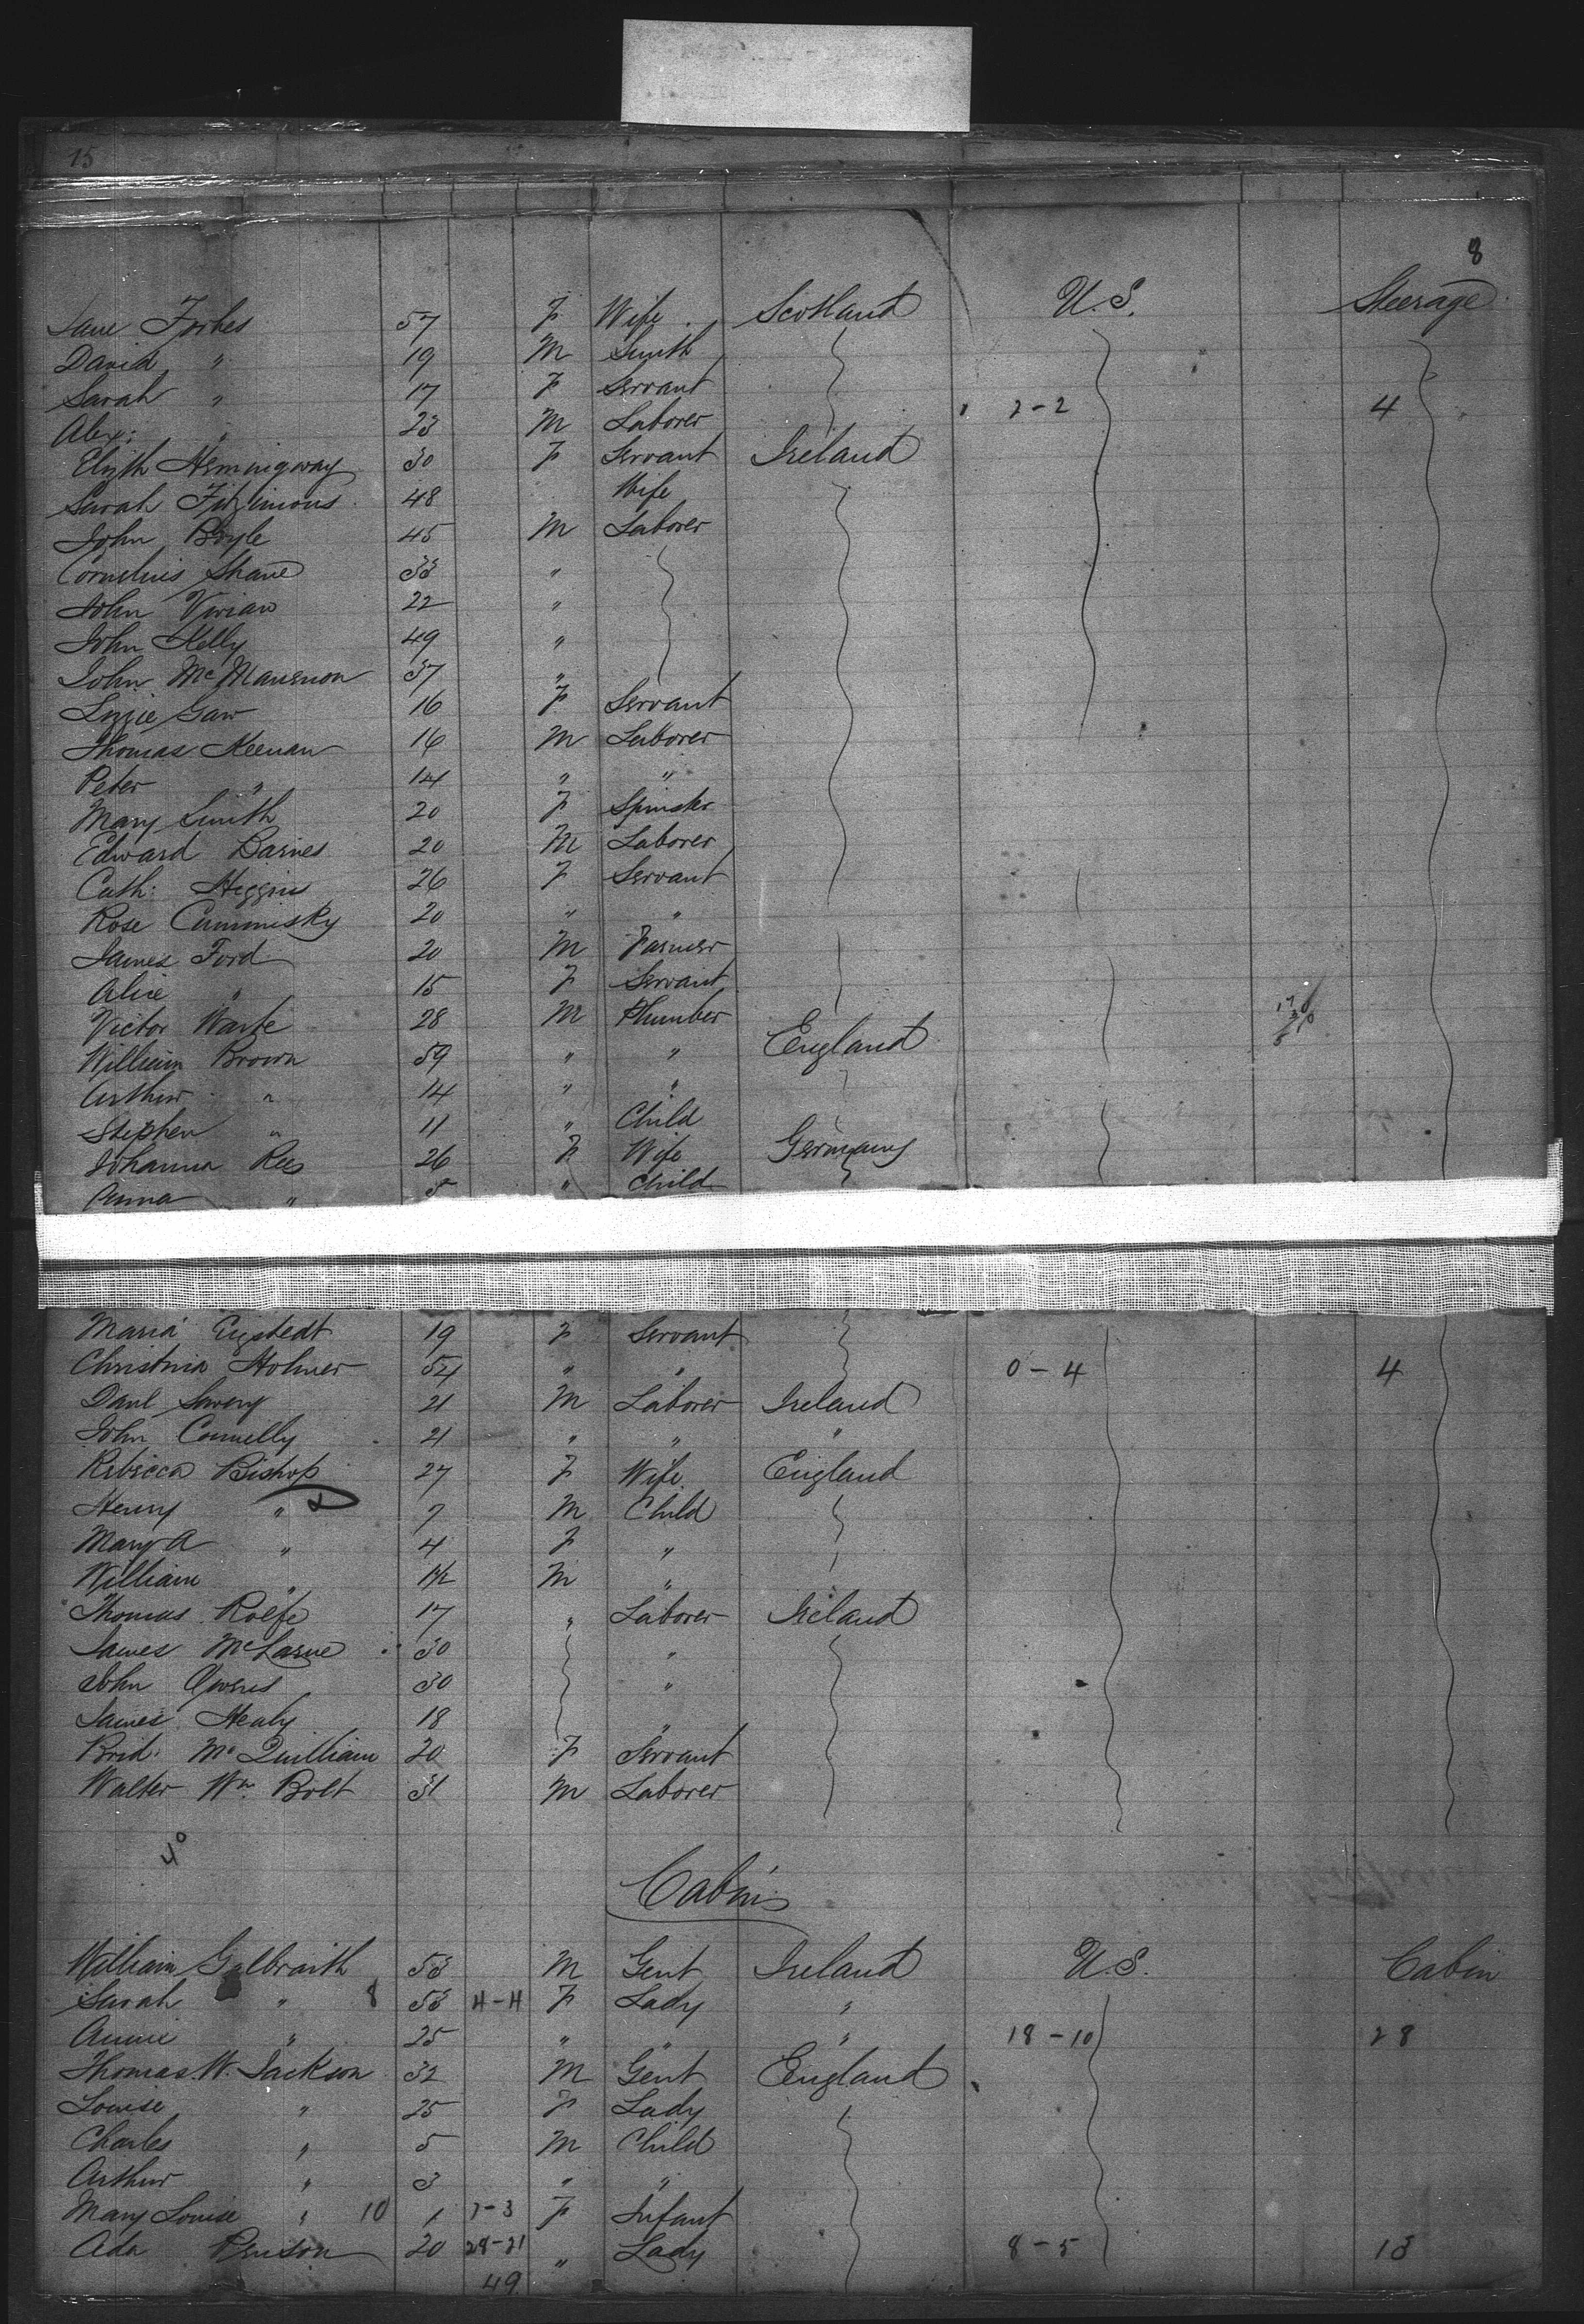 15
8
Jane Forbes 57 F Wife Scotland U.S. Steerage
David " 19 M Smith
Sarah " 17 F Servant
2-2 4
Alex: " 23 M Laborer
Elizth Hemingway 30 F Servant Ireland
Sarah Fitzimons 48 Wife
John Boyle 45 M Laborer
Cornelius Shane 33 "
John Vivian 22 "
John Kelly 49 "
John 37 "
Lizzie Gaw 16 F Servant
Thomas Keenan 16 M Laborer
Peter " 14 " "
Mary Smith 20 F Spinster
Edward Barnes 20 M Laborer
Cath: Higgins 26 F Servant
Rose Cummisky 20 " "
James Ford 20 M Farmer
Alice " 15 F Servant
Victor 28 M Plumber
William Brown 59 " " England
Arthur " 14 " "
Stephen " 11 " Child
Johanna Rees 26 F Wife Germany
Anna " 5 " Child
Maria 19 F Servant
Christina Holmer 54 " " 0-4 4
Danl 21 M Laborer Ireland
John Connelly 21 " " "
Rebecca Bishop 27 F Wife England
Henry " 7 M Child
Mary A " 4 F "
William " 1½ M "
Thomas Rolfe 17 " Laborer Ireland
James 30 "
John Owens 30 "
James Healy 18 "
Brid: McQuilliam 20 F Servant
Walter Wm. Bolt 31 M Laborer
40
Cabin
William Galbraith 53 M Gent Ireland U.S. Cabin
Sarah " 8 53 4-4 F Lady "
Annie " 25 " " " 18-10 28
Thomas W. Jackson 32 M Gent England
Louise " 25 F Lady
Charles " 5 M Child
Arthur " 3 " "
Mary Louise " 10 1 7-3 F Infant
Ada Benson 20 28-21 " Lady 8-5 13
49